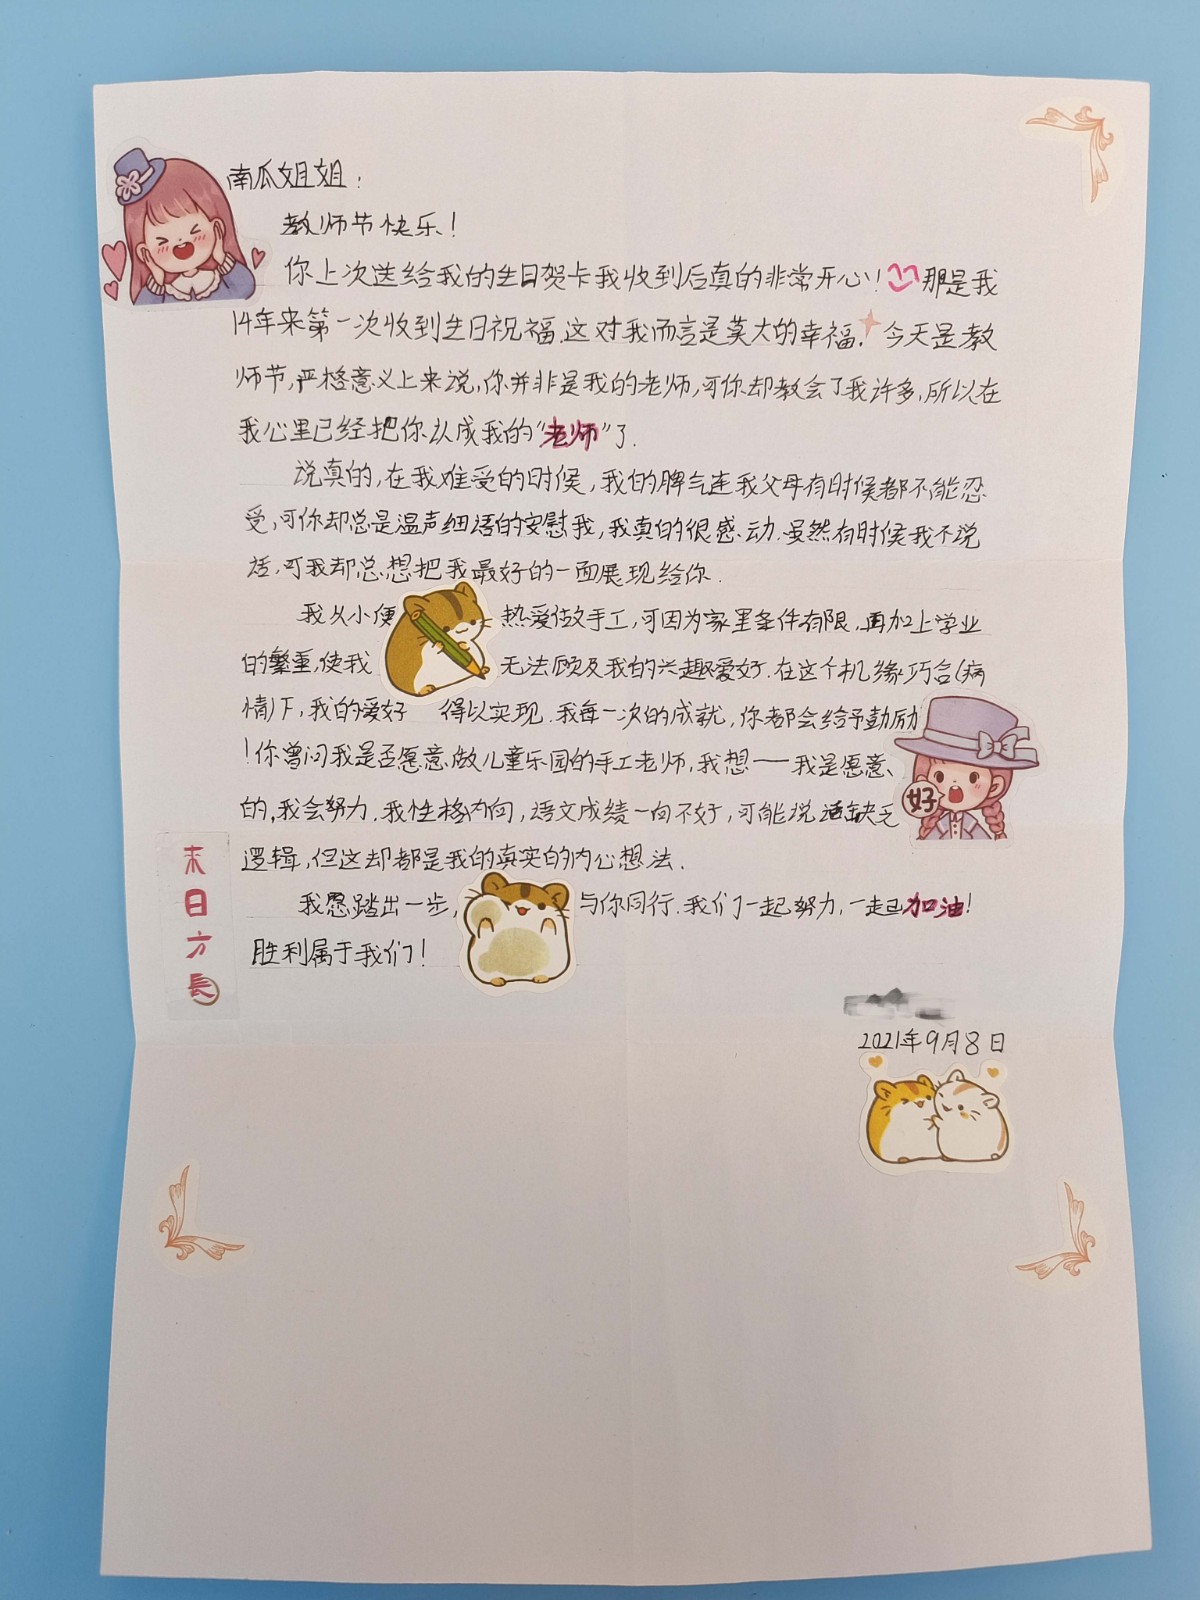 南瓜姐姐：
教师节快乐！
你上次送给我的生日贺卡我收到后真的非常开心！那是我
14年来第一次收到生日祝福.这对我而言是莫大的幸福.今天是教
师节,严格意义上来说,你并非是我的老师,可你却教会了我许多,所以在
我心里已经把你认成我的“老师”了.
说真的,在我难受的时候,我的脾气连我父母有时候都不能忍
受,可你却总是温声细语的安慰我,我真的很感动.虽然有时候我不说
话,可我却总想把我最好的一面展现给你.
我从小便热爱做手工,可因为家里条件有限,再加上学业
的繁重,使我无法顾及我的兴趣爱好.在这个机缘巧合(病
情)下,我的爱好得以实现.我每一次的成就,你都会给予鼓励
!你曾问我是否愿意做儿童乐园的手工老师,我想——我是愿意、
的,我会努力.我性格内向,语文成绩一向不好,可能说话缺乏
逻辑,但这却都是我的真实的内心想法.
我愿踏出一步,与你同行.我们一起努力,一起加油!
胜利属于我们!
2021年9月8日
来日方長
好